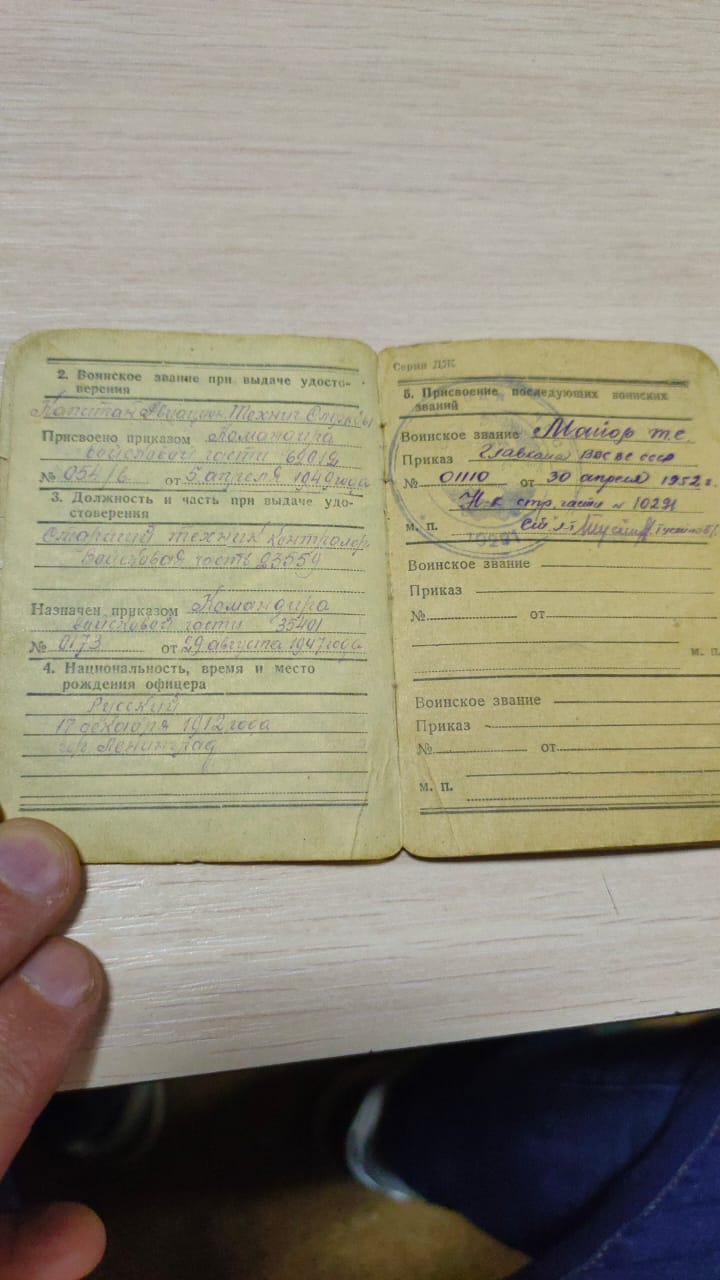 2. Воинское звание при выдаче удосто-
верения
Капитан Авиацион. Технич Службы
Присвоено приказом Командира
войсковой части
№ 054/б от 5 апреля 1949 года
3. Должность и часть при выдаче удо-
стоверения
Старший техник контролер
Войсковая часть 23559
Назначен приказом Командира
войсковой части 35401
№ 0173 от 29 августа 1947 года
4. Национальность, время и место
рождения офицера
Русский
17 декабря 1912 года
гор Ленинград
Серия ЛЖ
5. Присвоение последующих воинских
званий
Воинское звание Майор т.с.
Приказ Главкома ВВС ВС СССР
№ 01110 от 30 апреля 1952 г.
Н-к стр. части 10291
м. п. Ст. л-т
10291
Воинское звание
Приказ
№ от
м. п.
Воинское звание
Приказ
№ от
м. п.